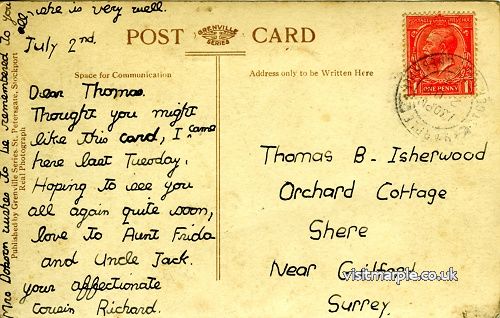 all, she is very well.
July 2nd.
POST CARD
GRENVILLE
SERIES
Space for Communication
Address only to be Written Here
Dear Thomas.
Thought you might
like this card, I came
here last Tuesday.
Hoping to see you
all again quite soon,
love to Aunt Frida
and Uncle Jack.
your affectionate
cousin Richard.
Thomas B. Isherwood
Orchard Cottage
Shere
Near Guilford
Surrey.
POSTAGE REVENUE
ONE PENNY
1 1
Mrs Dobson wishes to be remembered to you
Published by Grenville Series St. Petersgate, Stockport
Real Photograph
visitmarple.co.uk